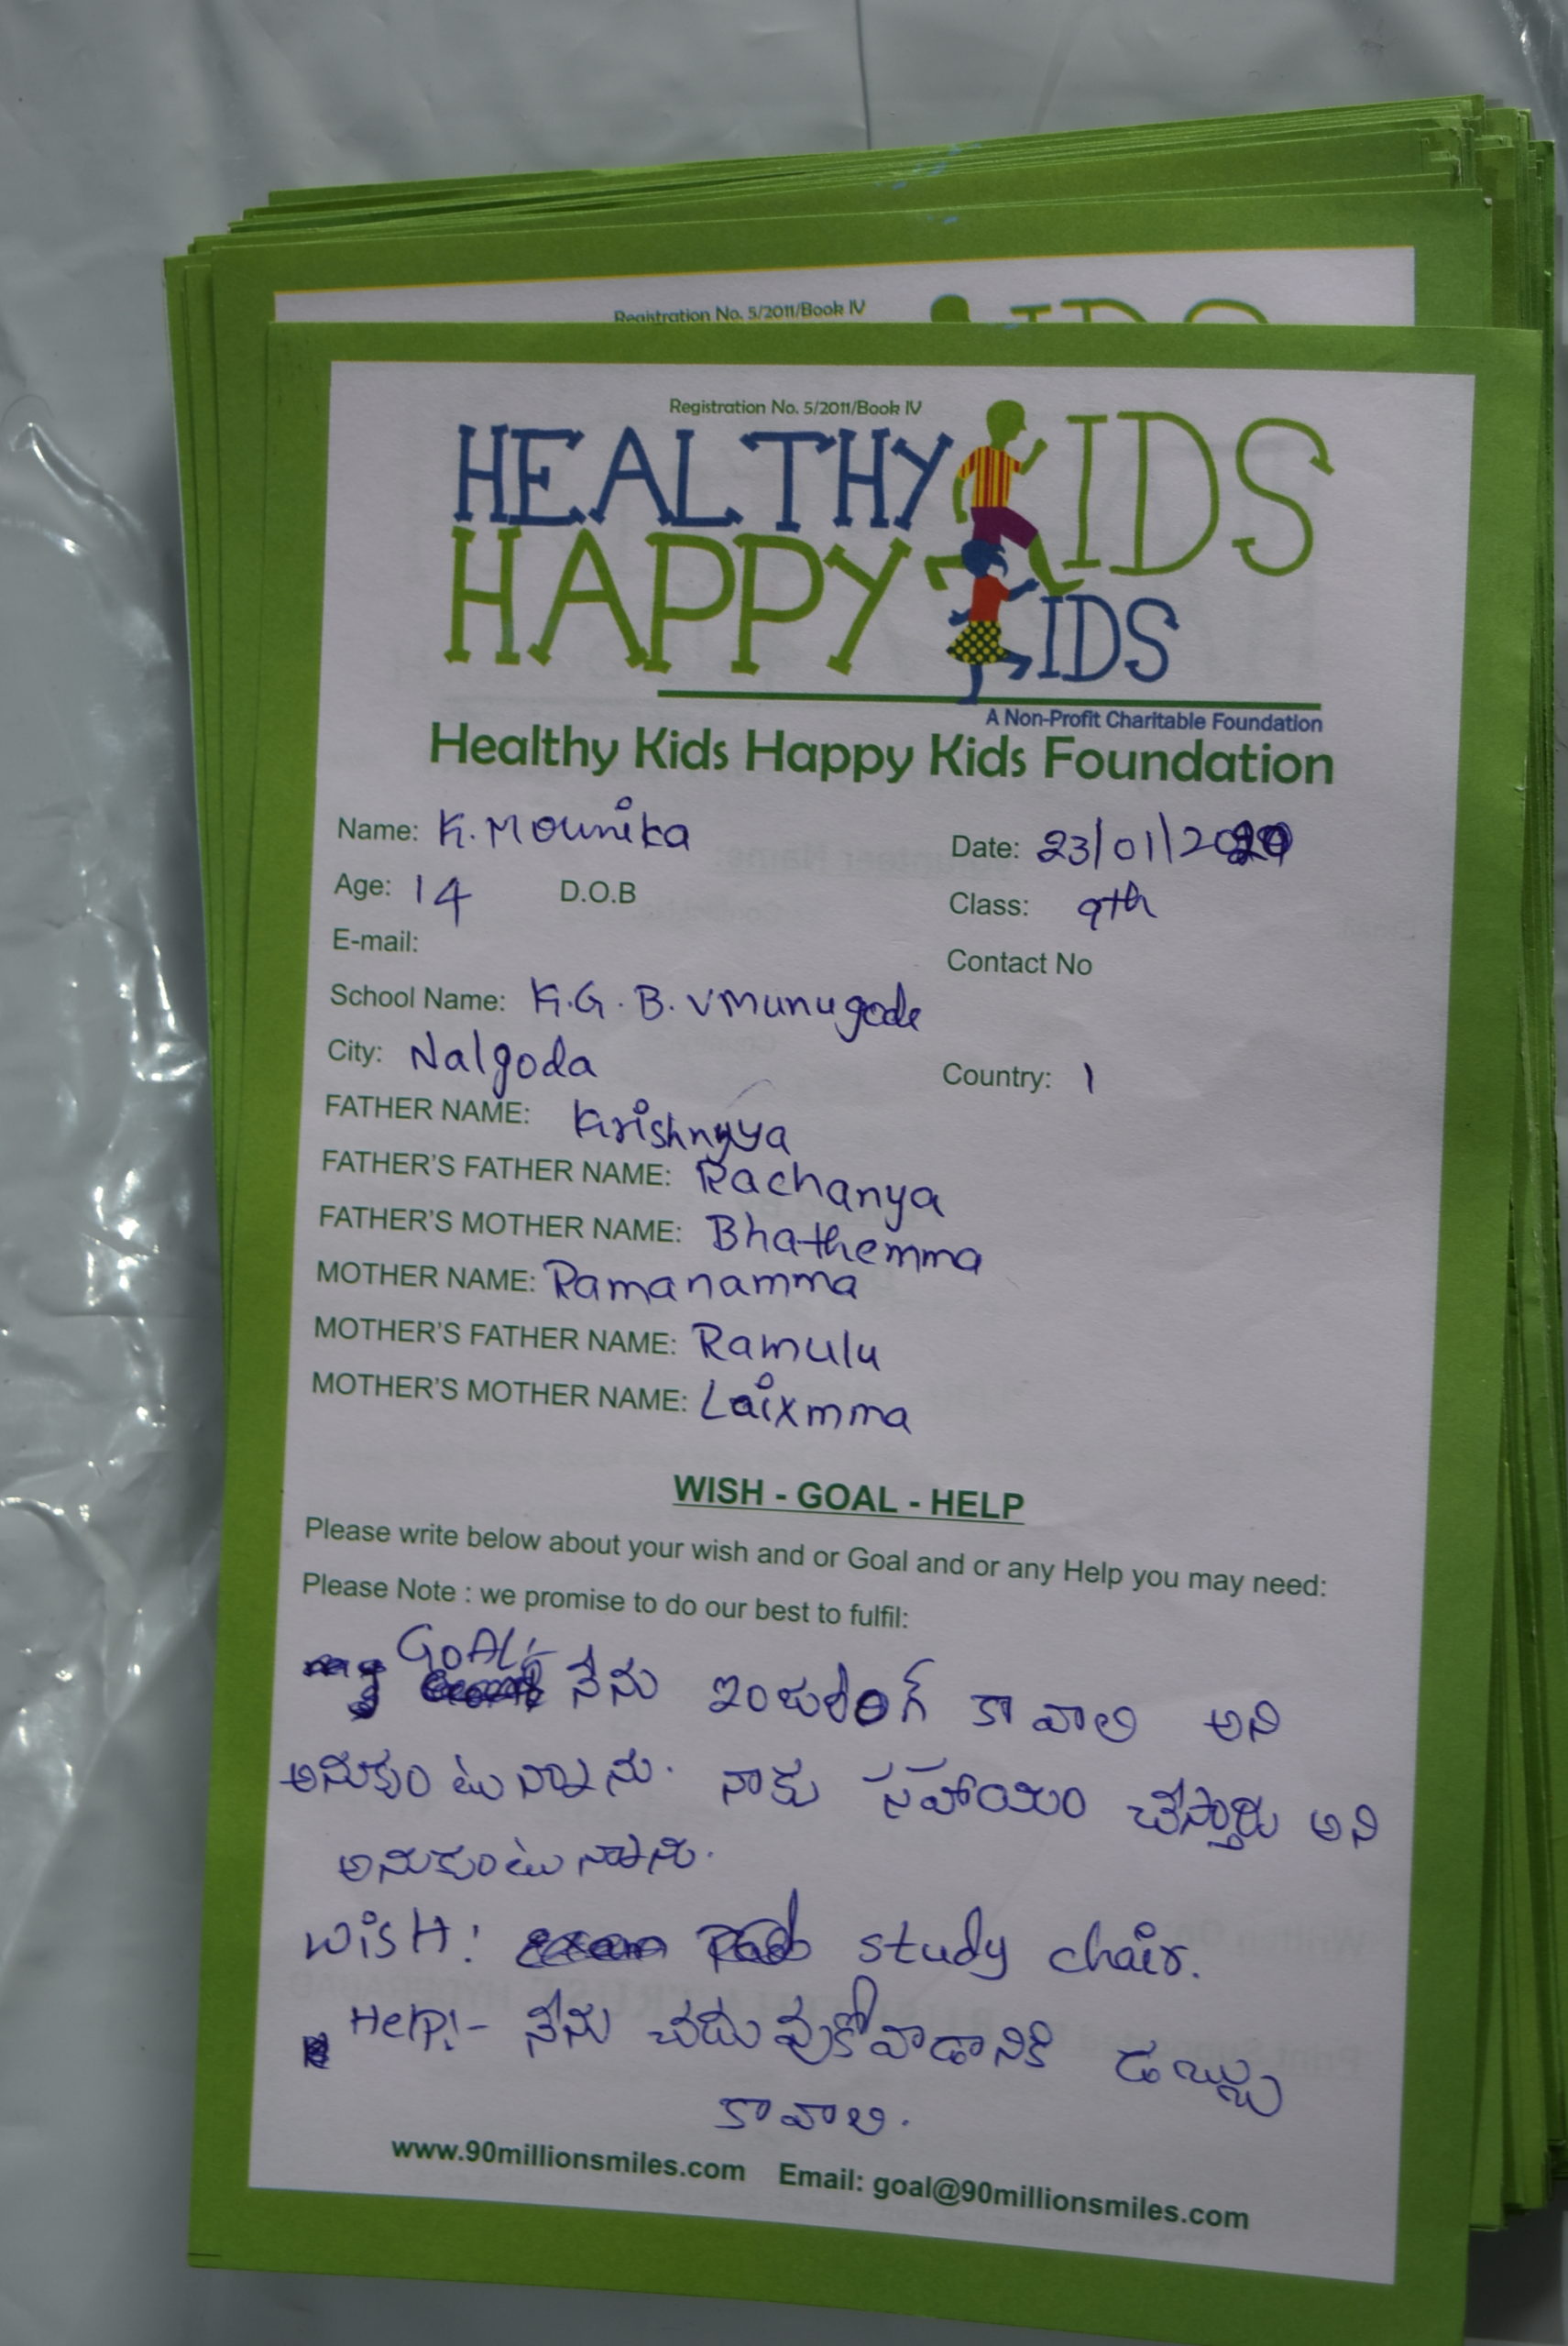 Registration No. 5/2011/Book IV
Registration No. 5/2011/Book IV
HEALTHY KIDS
HAPPY KIDS
A Non-Profit Charitable Foundation
Healthy Kids Happy Kids Foundation
Name: K. Mounika Date: 23/01/2020
Age: 14 D.O.B Class: 9th
E-mail: Contact No
School Name: K.G.B.V munugode
City: Nalgoda Country: 1
FATHER NAME: Krishnyya
FATHER'S FATHER NAME: Rachanya
FATHER'S MOTHER NAME: Bhathemma
MOTHER NAME: Ramanamma
MOTHER'S FATHER NAME: Ramulu
MOTHER'S MOTHER NAME: Laixmma
WISH - GOAL - HELP
Please write below about your wish and or Goal and or any Help you may need:
Please Note : we promise to do our best to fulfil:
GOAL:- నేను కావాలి అని
అనుకుంటున్నాను. నాకు సహాయం చేస్తారు అని
అనుకుంటున్నాను.
WISH: study chair.
Help:- నేను చదువుకోవాడానికి డబ్బు
కావాలి.
www.90millionsmiles.com Email: goal@90millionsmiles.com